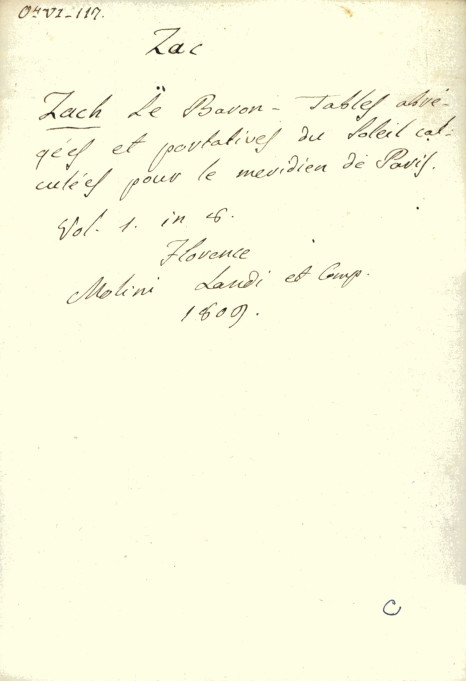 O.m VI-117.
Zac
Zach Le Baron - Tables abré-
gées et portatives du Soleil cal-
culées pour le meridien de Paris.
Vol. 1. in 8.
Florence
Molini Landi et Comp.
1809.
C